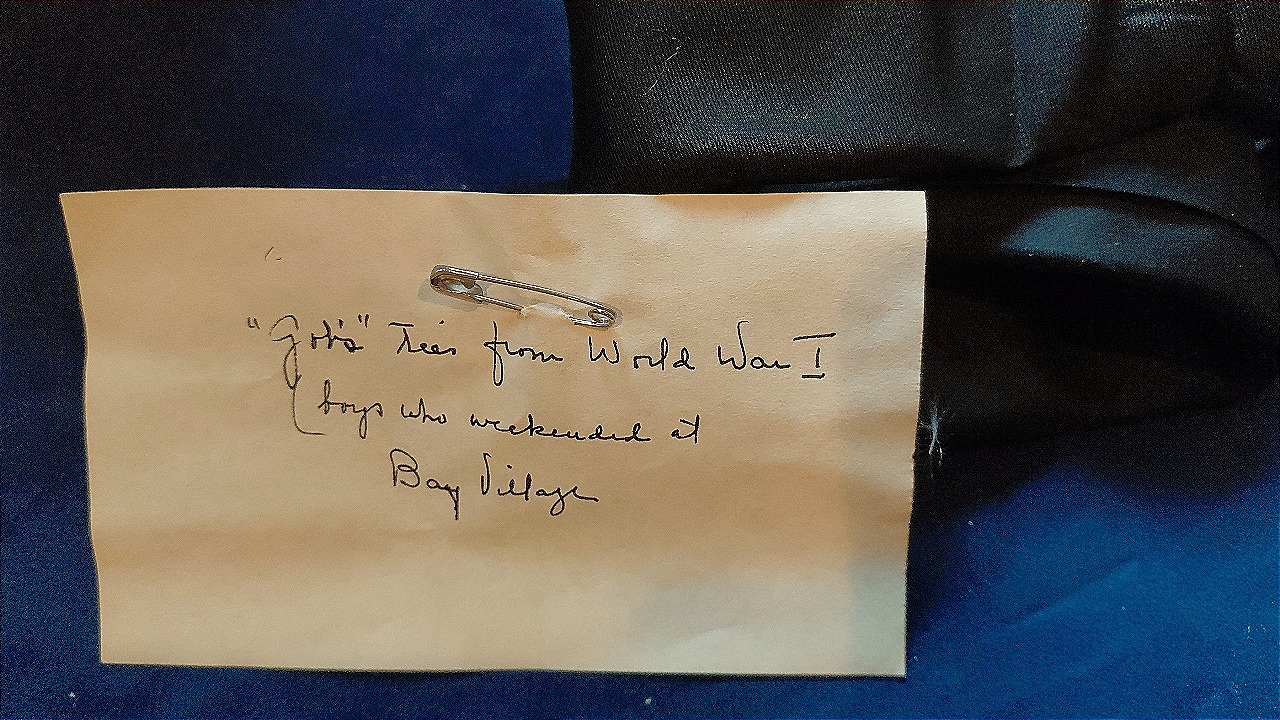 "Gob's" Ties from World War I
boys who weekended at
Bay Village